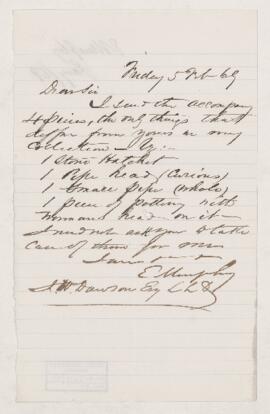 Friday 5 Feb 69
Dear Sir
I send the accompany
4 pieces, the only things that
differ from yours in my
Collection —
1 Stone Hatchet
1 Pipe head (Curious)
1 Small pipe (whole)
1 piece of pottery with
human head on it —
I need not ask you to take
care of them for me
I am
E Murphy
J. W. Dawson Esq LLD